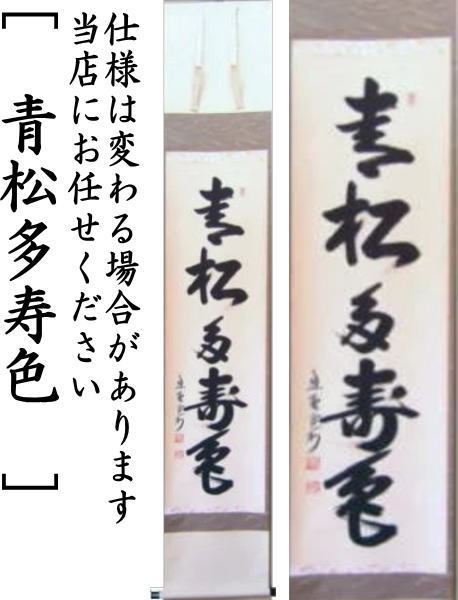 仕様は変わる場合があります
当店にお任せください
［青松多寿色］
青松多寿色
青松多寿色